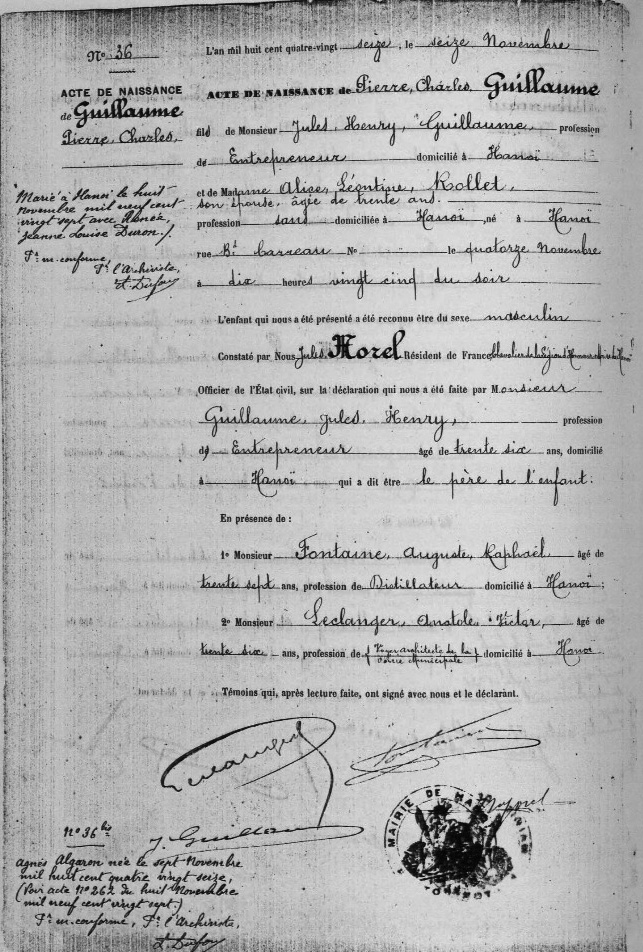 No 36
ACTE DE NAISSANCE
de Guillaume
Pierre, Charles,
Marié à Hanoï le huit
novembre mil neuf cent
vingt sept avec
Jeanne Louise Duron./.
Pr. m. conforme,
Pr. l'Archiviste,
L'an mil huit cent quatre-vingt seize, le seize Novembre
ACTE DE NAISSANCE de Pierre, Charles, Guillaume
fils de Monsieur Jules, Henry, Guillaume, profession
de Entrepreneur domicilié à Hanoï
et de Madame Alice, Léontine, Rollet,
son épouse, âgée de trente ans.
profession sans domiciliée à Hanoï, né à Hanoï
rue Bd Carreau No le quatorze Novembre
à dix heures vingt cinq du soir
L'enfant qui nous a été présenté a été reconnu être du sexe masculin
Constaté par Nous Jules Morel Résident de France, Chevalier de la Légion d'Honneur
Officier de l'État civil, sur la déclaration qui nous a été faite par Monsieur
Guillaume, Jules, Henry, profession
d' Entrepreneur âgé de trente six ans, domicilié
à Hanoï qui a dit être le père de l'enfant.
En présence de :
1o Monsieur Fontaine, Auguste, Raphaël, âgé de
trente sept ans, profession de Distillateur domicilié à Hanoï ;
2o Monsieur Leclanger, Anatole, Victor, âgé de
trente six ans, profession de Voyer architecte de la
voirie Municipale domicilié à Hanoï.
Témoins qui, après lecture faite, ont signé avec nous et le déclarant.
Fontaine
J. Guillaume
MAIRIE DE
No 36 bis
Agnès Algaron née le sept Novembre
mil huit cent quatre vingt seize,
(Voir acte No 262 du huit Novembre
mil neuf cent vingt sept.)
Pr. m. conforme, Pr. l'Archiviste,